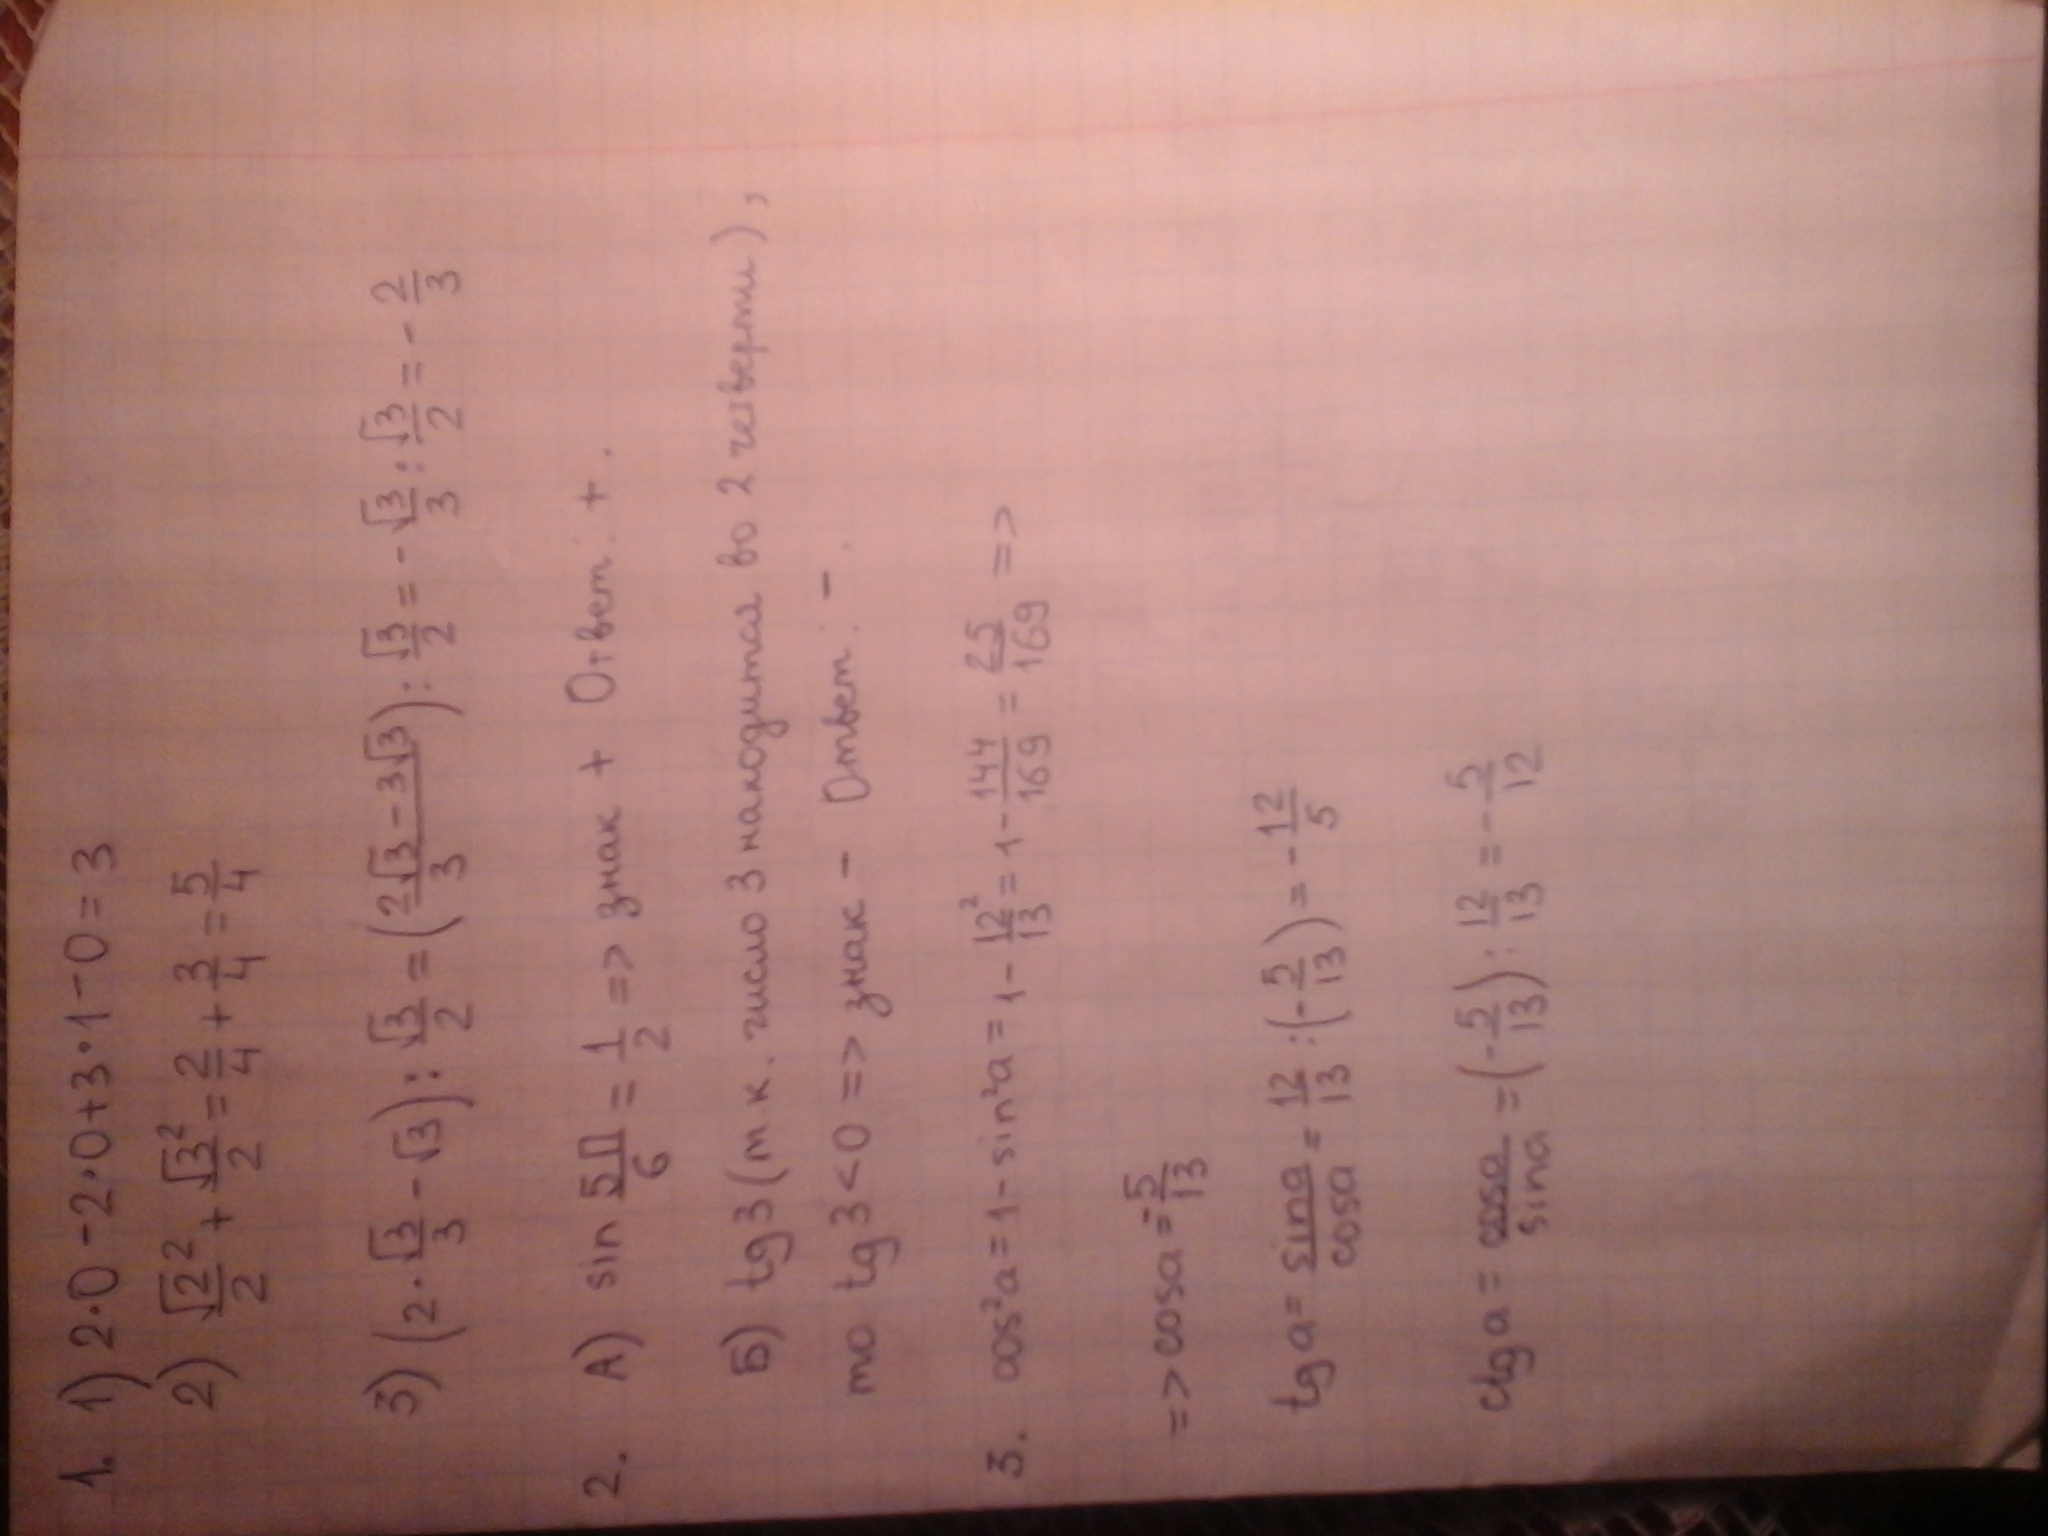 1. 1) 2·0-2·0+3·1-0=3
2) √2²/2 + √3²/2 = 2/4 + 3/4 = 5/4
3) (2·√3/3 - √3) : √3/2 = (2√3-3√3/3) : √3/2 = -√3/3 : √3/2 = -2/3
2. А) sin 5П/6 = 1/2 => знак + Ответ: +.
Б) tg3 (т.к. число 3 находится во 2 четверти),
то tg3<0 => знак - Ответ: -.
3. cos²a = 1 - sin²a = 1 - 12²/13 = 1 - 144/169 = 25/169 =>
=> cosa = -5/13
tga = sina/cosa = 12/13 : (-5/13) = -12/5
ctga = cosa/sina = (-5/13) : 12/13 = -5/12